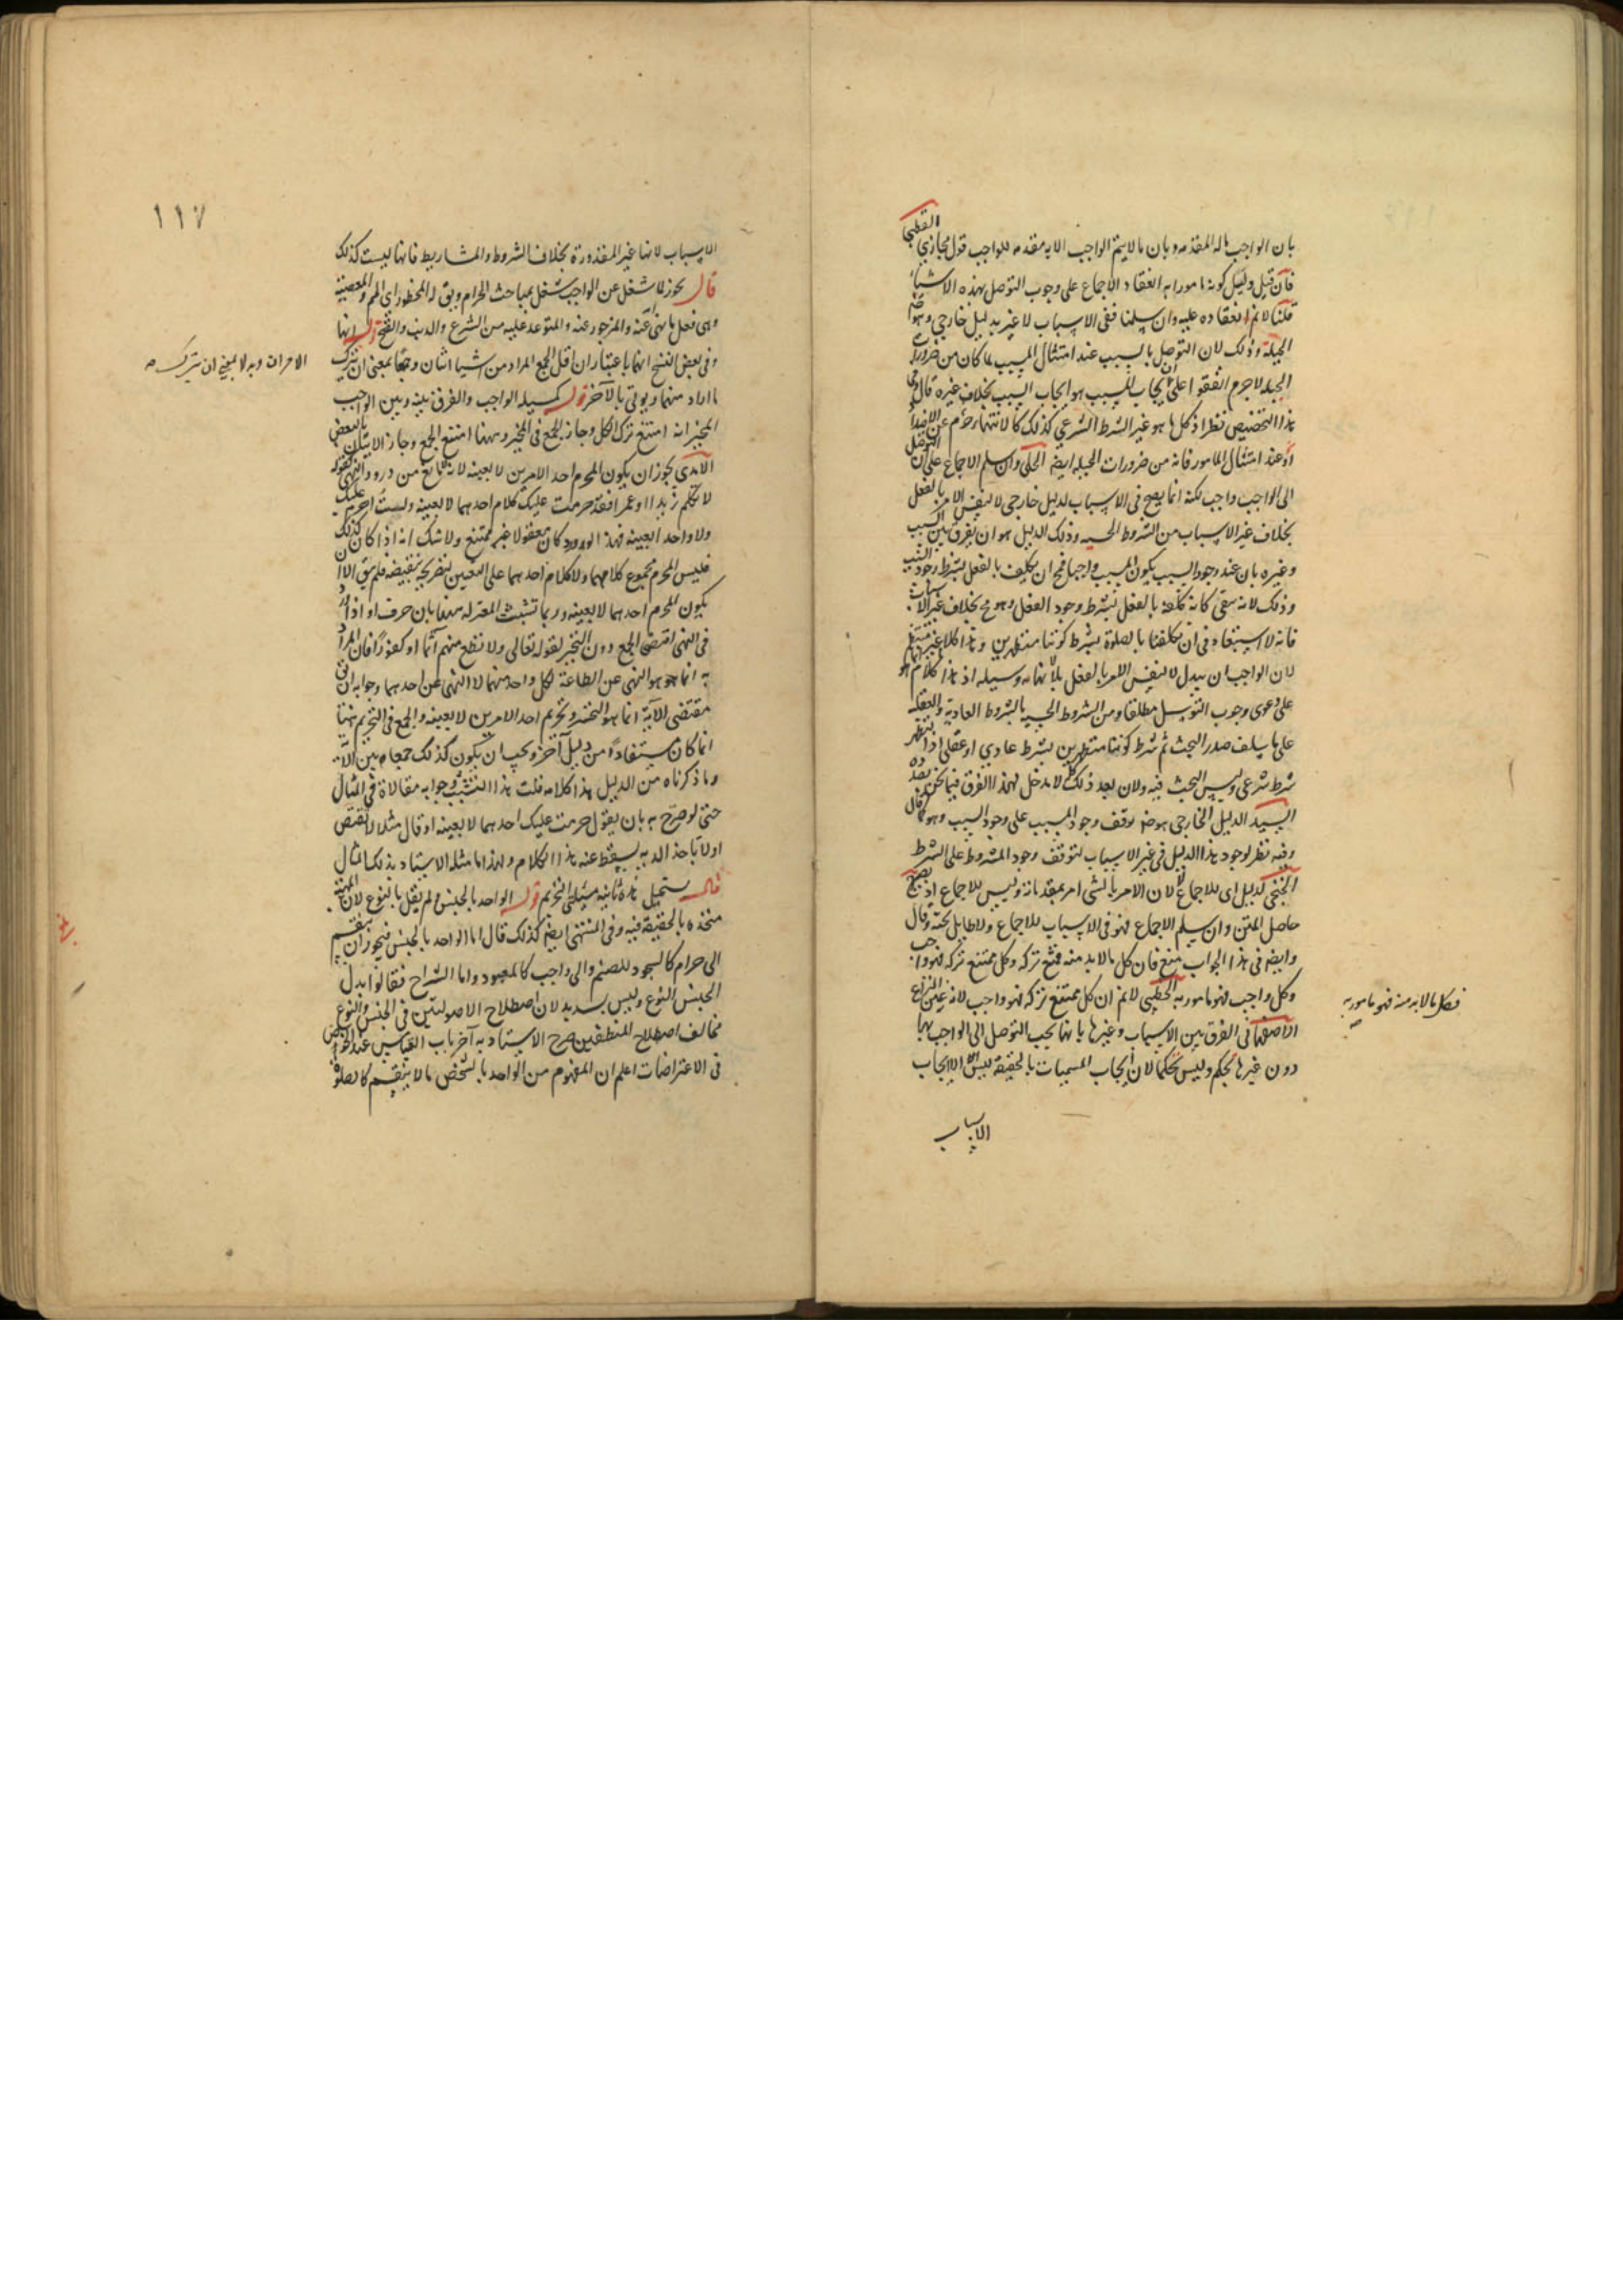 بان الواجب ما له المقدمه وبان ما لا يتم الواجب الا به مقدمه للواجب قول مجازي القطبي
فان قيل دليل كونه مامورا به انعقاد الاجماع على وجوب التوصل بهذه الاشياء
قلنا لا نم انعقاده عليه وان سلمنا ففي الاسباب لا غير بدليل خارجي وهو
الجبلة وذلك لان التوصل بالسبب عند امتثال المسبب لما كان من ضرورة
الجبله لا جرم اتفقوا على ان ايجاب المسبب هو ايجاب السبب بخلاف غيره قال وفي
هذا التخصيص نظر اذ كل ما هو غير الشرط الشرعي كذلك
اذ عند امتثال المامور فانه من ضرورات الجبله ايضا الحلي وان سلم الاجماع على ان التوصل
الى الواجب واجب لكنه انما يصح في الاسباب لدليل خارجي لا لنفس الامر بالفعل
بخلاف غير الاسباب من الشروط الحسيه وذلك الدليل هو ان يفرق بين السبب
وغيره بان عند وجود السبب يكون المسبب واجبا فح ان يكلف بالفعل بشرط وجود السبب
وذلك لانه يبقى كانه كلفه بالفعل بشرط وجود الفعل وهو مح بخلاف غير الاسباب
فانه لا استبعاد في ان يكلفنا بالصلوة بشرط كوننا متطهرين وهذا كلام غير منتظم
لان الواجب ان يبدل لا لنفس الامر بالفعل بلا نهايه وسيله اذ هذا كلام هو
على دعوى وجوب التوسل مطلقا ومن الشروط الحسيه بالشروط العاديه والعقليه
على ما سلف صدر البحث ثم شرط كوننا متطهرين ليس شرط عادي او عقلي اذ التطهر
شرط شرعي وليس البحث فيه ولان بعد ذلك كله لا مدخل لهذا الفرق فيما نحن بصدده
السيد الدليل الخارجي هو ضرورة توقف وجود المسبب على وجود السبب وهو كما قال
وفيه نظر لوجود هذا الدليل في غير الاسباب لتوقف وجود المشروط على الشرط
الخنجي لدليل اي للاجماع لا لان الامر بالشي امر بمقدماته وليس للاجماع اذ يصح
حاصل المتن وان سلم الاجماع فهو في الاسباب للاجماع ولا طايل تحته وقال
وايضا في هذا الجواب منع فان كل ما لا بد منه ممتنع تركه وكل ممتنع تركه فهو واجب
وكل واجب فهو مامور به الخطيبي لا نم ان كل ممتنع تركه فهو واجب لانه عين النزاع
الاصفهاني الفرق بين الاسباب وغيرها بانها يجب التوصل الى الواجب بها
دون غيرها تحكم وليس تحكما لان ايجاب المسببات بالحقيقة ليس الا ايجاب
الاسباب
فكل ما لا بد منه فهو مامور به
١١٧
الاسباب لانها غير المقدورة بخلاف الشروط والمشاريط فانها ليست كذلك
قال يجوز لما شغل عن الواجب شغل بمباحث الحرام ويق له المحظور اي المحرم والمعصية
وهي فعل ما نهي عنه والمزجور عنه والمتوعد عليه من الشرع والذنب والقبح قوله انها
وفي بعض النسخ انها باعتبار ان اقل الجمع المراد من اشيا اثنان وجمعا بمعنى ان يترك
ما اراد منهما ويوتي بالآخر قوله كمسيله الواجب والفرق بينه وبين الواجب
المخير انه امتنع ترك الكل وجاز الجمع في المخير وههنا امتنع الجمع وجاز الاتيان بالبعض
الآمدي يجوز ان يكون المحرم احد الامرين لا بعينه لانه لا مانع من ورود النهي كقوله
لا تكلم زيدا او عمرا فقد حرمت عليك كلام احدهما لا بعينه ولست احرم عليك
ولا واحدا بعينه فهذا الورود كان معقولا غير ممتنع ولا شك انه اذا كان كذلك
فليس المحرم مجموع كلاميهما ولا كلام احدهما على التعيين لتصريحه بنقيضه فلم يبق الا ان
يكون المحرم احدهما لا بعينه وربما تشبث المعتزله ههنا بان حرف او اذا ورد
في النهي اقتضى الجمع دون التخيير لقوله تعالى ولا تطع منهم آثما او كفورا فان المراد
به انما هو النهي عن الطاعة لكل واحد منهما لا النهي عن احدهما وجوابه ان
مقتضى الآية انما هو التخيير وتحريم احد الامرين لا بعينه والجمع في التحريم ههنا
انما كان مستفادا من دليل آخر ويجب ان يكون كذلك جمعا بين الآية
وما ذكرناه من الدليل هذا كلامه قلت هذا التشبث وجوابه مقالاة في المثال
حتى لو صرح به بان يقول حرمت عليك احدهما لا بعينه او قال مثلا لا تقتص
او لا تاخذ الديه يسقط عنه هذا الكلام ولهذا ما مثله الاستاد بذلك المثال
قال يستحيل هذه ثانيه مسئلتي التحريم قوله الواحد بالجنس ولم يقل بالنوع لان الماهية
متحده بالحقيقة فيه وفي المنتهى ايضا كذلك قال اما الواحد بالجنس فيجوز ان ينقسم
الى حرام كالسجود للصنم والى واجب كالمعبود واما الشراح فقالوا بدل
الجنس النوع وليس بسديد لان اصطلاح الاصوليين في الجنس والنوع
مخالف اصطلاح المنطقيين صرح الاستاد به آخر باب القياس عند الخوض
في الاعتراضات اعلم ان المفهوم من الواحد بالشخص ما لا ينقسم كالصلوة
الامران وبه لا بمعنى ان يترك